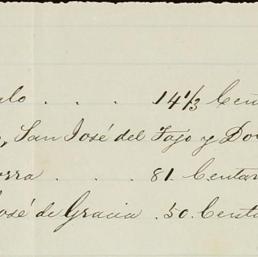 lo . . . 14 1/3 Cen
, San José del Tajo y Do
orra . . . 81. Centa
José de Gracia . 50. Centa